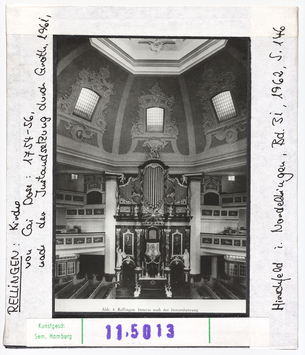 RELLINGEN: Kirche
von Cai Dose: 1754-56,
nach der Instandsetzung durch Groth, 1961,
Hirschfeld i. Nordelbingen, Bd. 31, 1962, S. 146
Abb. 4. Rellingen, Inneres nach der Instandsetzung
Kunstgesch.
Sem. Hamburg
11.5013